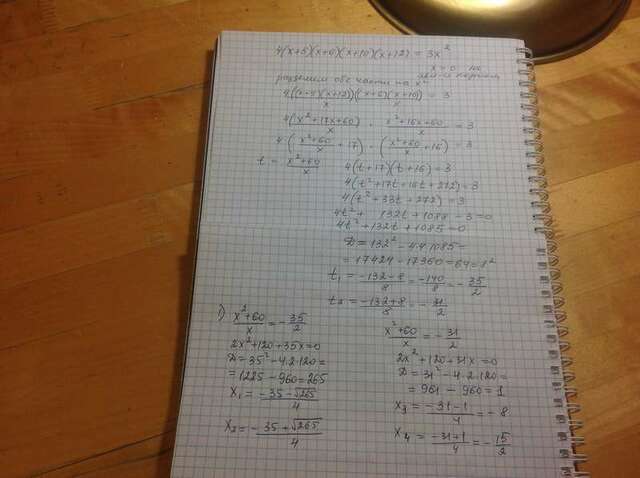 4(x+5)(x+6)(x+10)(x+12) = 3x²
x=0 не
разделим обе части на x²
4((x+5)(x+12))/x · ((x+6)(x+10))/x = 3
4(x²+17x+60)/x · (x²+16x+60)/x = 3
4((x²+60)/x + 17) · ((x²+60)/x + 16) = 3
t = (x²+60)/x
4(t+17)(t+16) = 3
4(t²+17t+16t+272) = 3
4(t²+33t+272) = 3
4t² + 132t + 1088 - 3 = 0
4t² + 132t + 1085 = 0
D = 132² - 4·4·1085 =
= 17424 - 17360 = 64 = 8²
t₁ = (-132-8)/8 = -140/8 = -35/2
t₂ = (-132+8)/8 = -31/2
1) (x²+60)/x = -35/2
2x²+120+35x=0
D = 35² - 4·2·120 =
= 1225 - 960 = 265
x₁ = (-35-√265)/4
x₂ = (-35+√265)/4
(x²+60)/x = -31/2
2x²+120+31x=0
D = 31² - 4·2·120 =
= 961 - 960 = 1
x₃ = (-31-1)/4 = -8
x₄ = (-31+1)/4 = -15/2